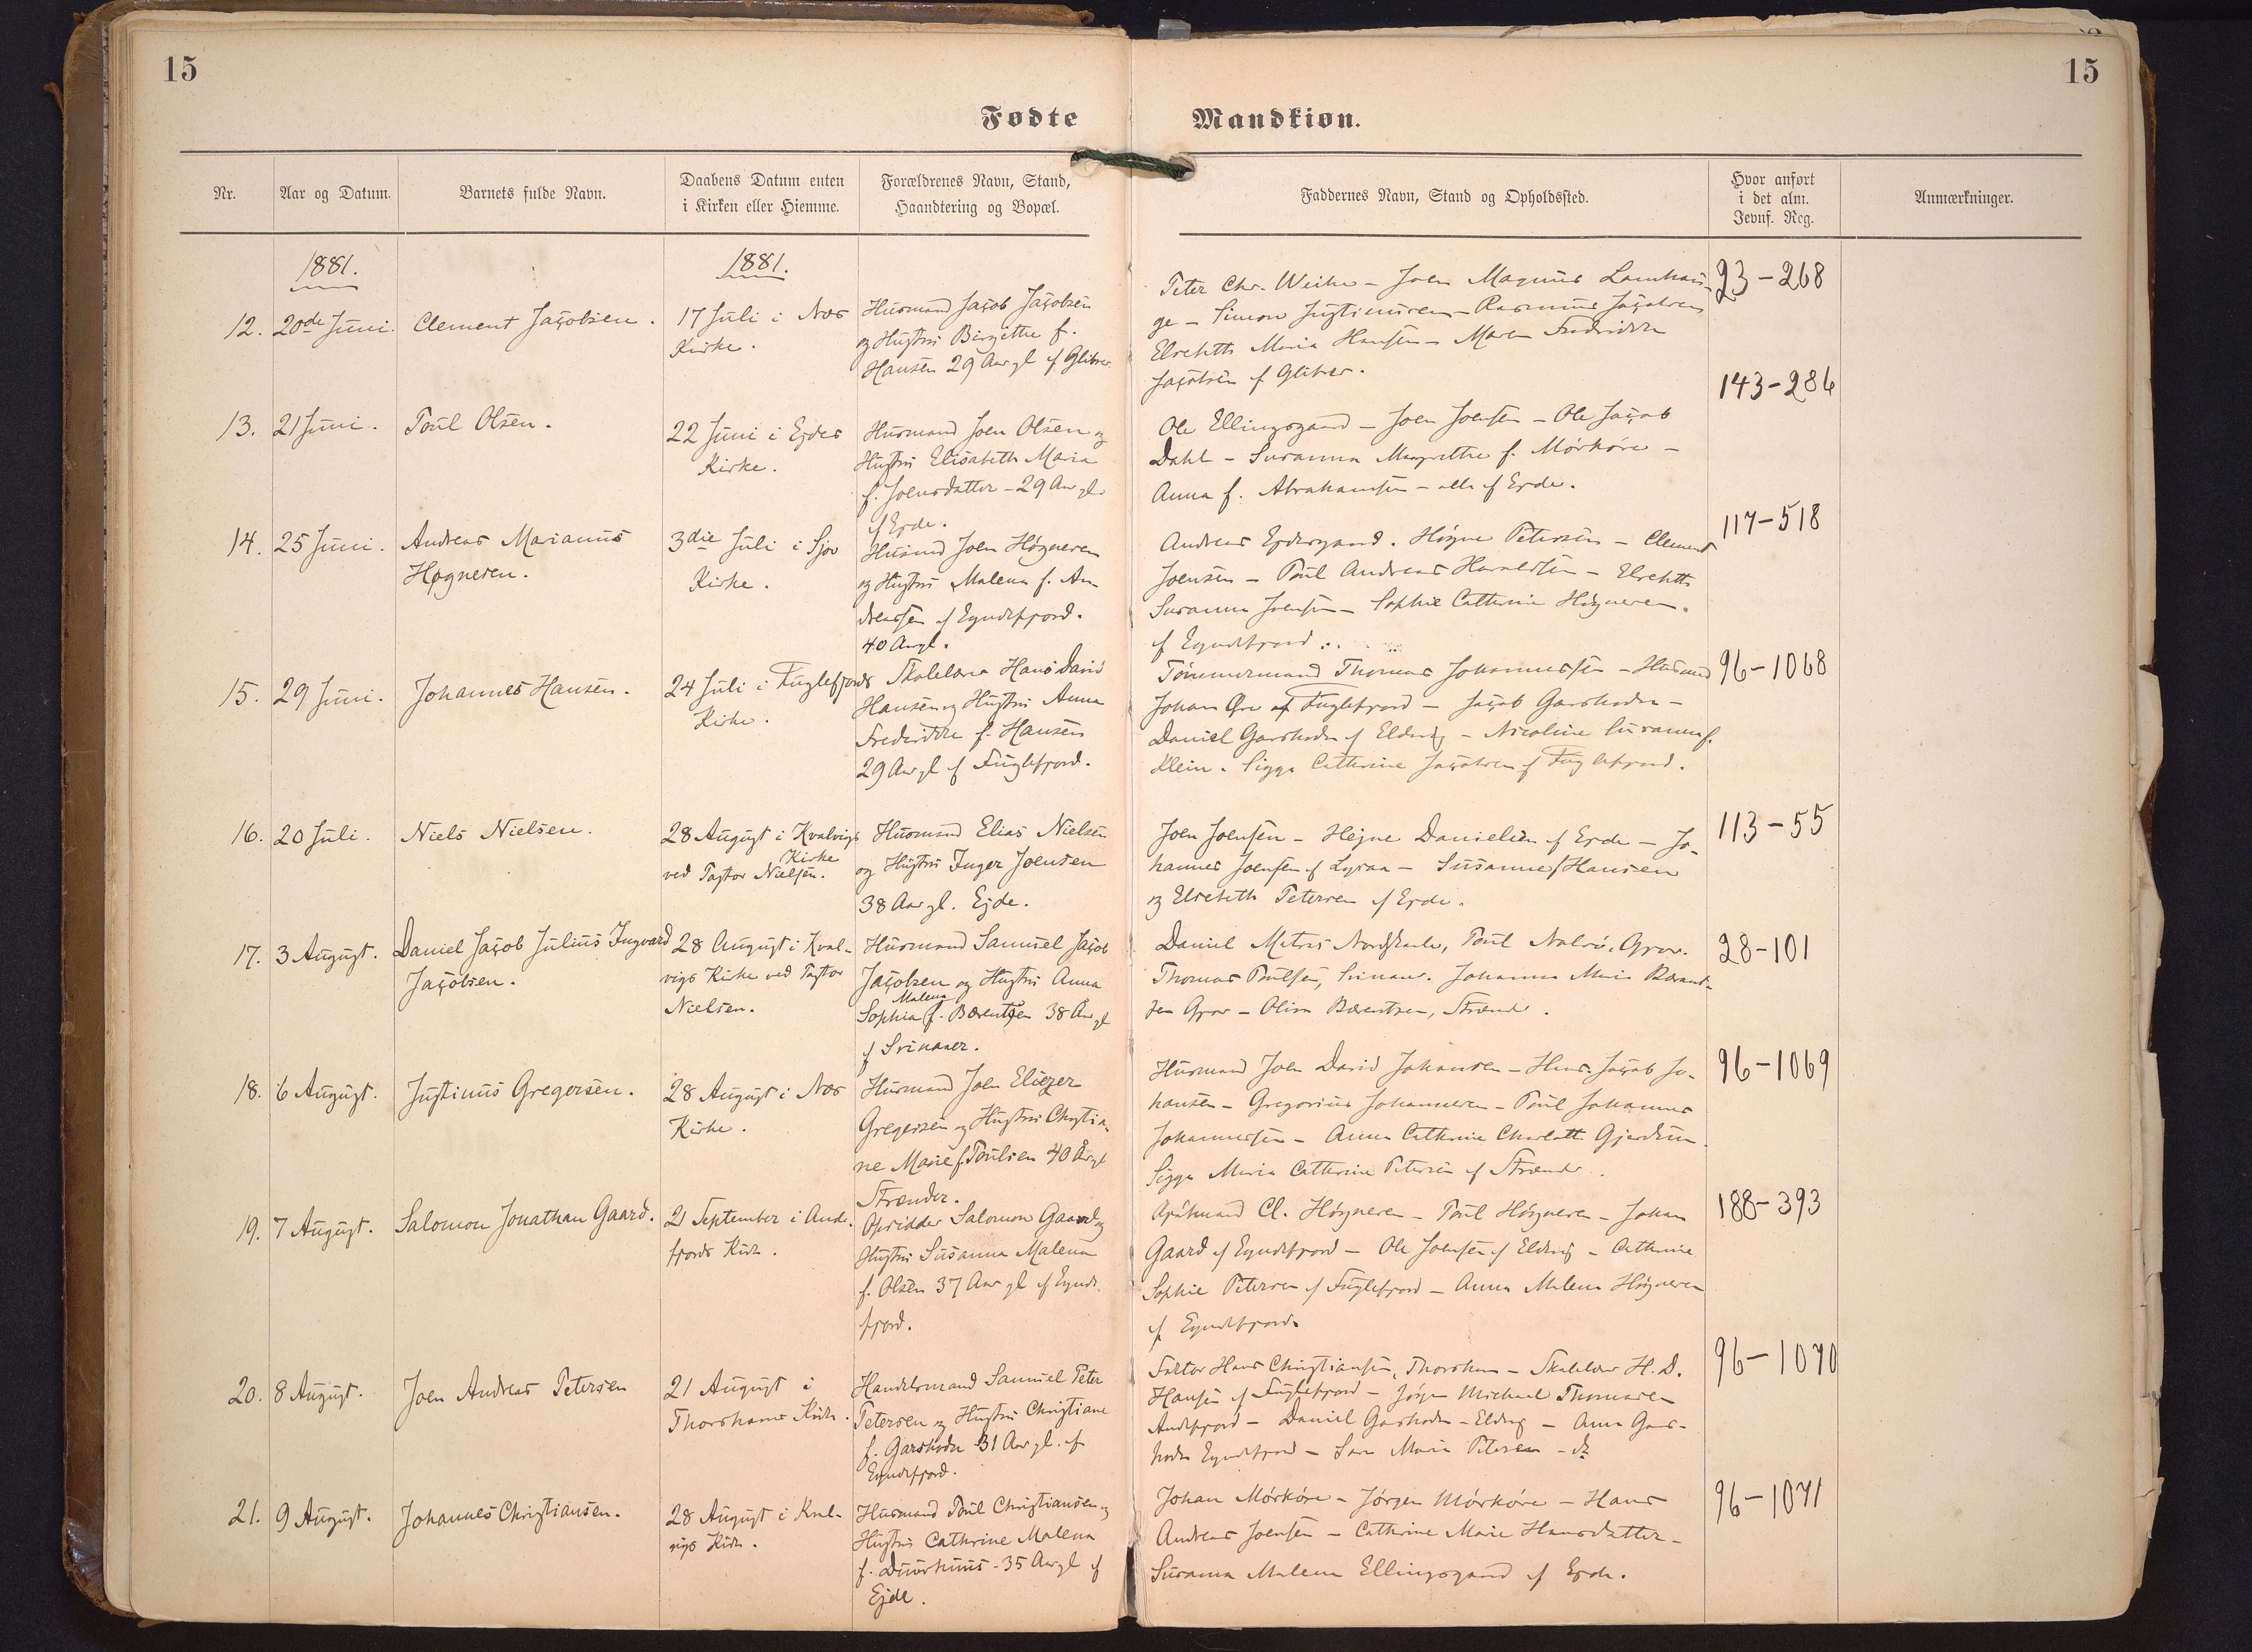 15
15
Fødte Mandkiøn.
Nr.
Aar og Datum.
Barnets fulde Navn.
Daabens Datum enten
i Kirken eller Hiemme.
Forældrenes Navn, Stand,
Haandtering og Bopæl.
Faddernes Navn, Stand og Opholdssted.
Hvor anført
i det alm.
Jevnf. Reg.
Anmærkninger.
1881.
1881.
12. 20de Juni. Clement Jacobsen.
17 Juli i Næs
Kirke.
Husmand Jacob Jacobsen
og Hustru Birgithe f.
Hansen 29 Aar gl af Glibre
Peter Chr. Weihe - Joen Magnus Lamhau-
ge - Simon Justinussen - Rasmus Jacobsen
Elsebeth Maria Hansen - Maren Fredrikke
Jacobsen af Glibre.
93-268
13. 21 Juni. Poul Olsen.
22 Juni i Ejdes
Kirke.
Husmand Joen Olsen og
Hustru Elisabeth Maria
f. Joensdatter - 29 Aar gl.
af Ejde.
Ole Ellingsgaard - Joen Joensen - Ole Jacob
Dahl - Susanna Margrethe f. Mørkøre -
Anna f. Abrahamsen - alle af Ejde.
143-286
14. 25 Juni. Andreas Marianus
Høgnesen.
3die Juli i Sjov
Kirke.
Husmd Joen Høgnesen
og Hustru Malena f. An-
dreassen af Eyndefjord.
40 Aar gl.
Andreas Ejdesgaard. Høgne Petersen - Clement
Joensen - Poul Andreas Haraldsen - Elsebeth
Susanna Joensen - Sophie Cathrine Høgnesen.
af Eyndefjord.
117-518
15. 29 Juni. Johannes Hansen.
24 Juli i Fuglefjords
Kirke.
Skolelærer Hans David
Hansen og Hustru Anna
Fredrikke f. Hansen
29 Aar gl af Fuglefjord.
Tømmermand Thomas Johannessen - Husmd
Johan Øre af Fuglefjord - Jacob Garshodn -
Daniel Garshodn af Eldevig - Nicoline Susanne f.
Klein. Sigga Cathrine Jacobsen af Fuglefjord.
96-1068
16. 20 Juli. Niels Nielsen.
28 August i Kvalvigs
Kirke
ved Pastor Nielsen.
Husmand Elias Nielsen
og Hustru Inger Joensen
38 Aar gl. Ejde.
Joen Joensen - Hejne Danielsen af Ejde - Jo-
hannes Joensen af Ljosaa - Susanne f Hansen
og Elsebeth Petersen af Ejde.
113-55
17. 3 August. Daniel Jacob Julius Ingvard
Jacobsen.
28 August i Kval-
vigs Kirke ved Pastor
Nielsen.
Husmand Samuel Jacob
Jacobsen og Hustru Anna
Malena
Sophia f. Bærentsen 38 Aar gl
af Svinaaer.
Daniel Matras Nordskaale, Poul Nolsø, Gjov.
Thomas Poulsen, Svinaaer. Johanna Maria Bærent-
sen Gjov - Olina Bærentsen, Strænder.
28-101
18. 6 August. Justinus Gregersen.
28 August i Næs
Kirke.
Husmand Joen Eliezer
Gregersen og Hustru Christia-
ne Marie f. Poulsen 40 Aar gl
Strænder.
Husmand Joen David Johansen - Hans Jacob Jo-
hansen - Gregorius Johannesen - Poul Johannes
Johannessen - Anna Cathrine Charlott Gjerdum
Sigga Maria Cathrine Petersen af Strænder.
96-1069
19. 7 August. Salomon Jonathan Gaard.
21 September i Ande-
fjords Kirke.
Opsidder Salomon Gaard og
Hustru Susanna Malena
f. Olsen 37 Aar gl af Eynde-
fjord.
Cl. Høgnesen - Poul Høgnesen - Johan
Gaard af Eyndefjord - Ole Joensen af Eldevig - Cathrine
Sophie Petersen af Fuglefjord - Anna Malena Høgnesen
af Eyndefjord.
188-393
20. 8 August. Joen Andreas Petersen
21 August i
Thorshavns Kirke.
Handelsmand Samuel Peter
Petersen og Hustru Christiane
f. Garshodn 31 Aar gl. af
Eyndefjord.
Faktor Hans Christiansen, Thorshavn - Skolelærer H. D.
Hansen af Fuglefjord - Jógvan Michael Thomasen
Andefjord - Daniel Garshodn - Eldevig - Anna Gars-
hodn Eyndefjord - Sara Maria Petersen - do
96-1070
21. 9 August. Johannes Christiansen.
28 August i Kval-
vigs Kirke.
Husmand Poul Christiansen og
Hustru Cathrine Malena
f. Duurhuus - 35 Aar gl af
Ejde.
Johan Mørkøre - Jørgen Mørkøre - Hans
Andreas Joensen - Cathrine Marie Hansdatter -
Susanna Malena Ellingsgaard af Ejde.
96-1071